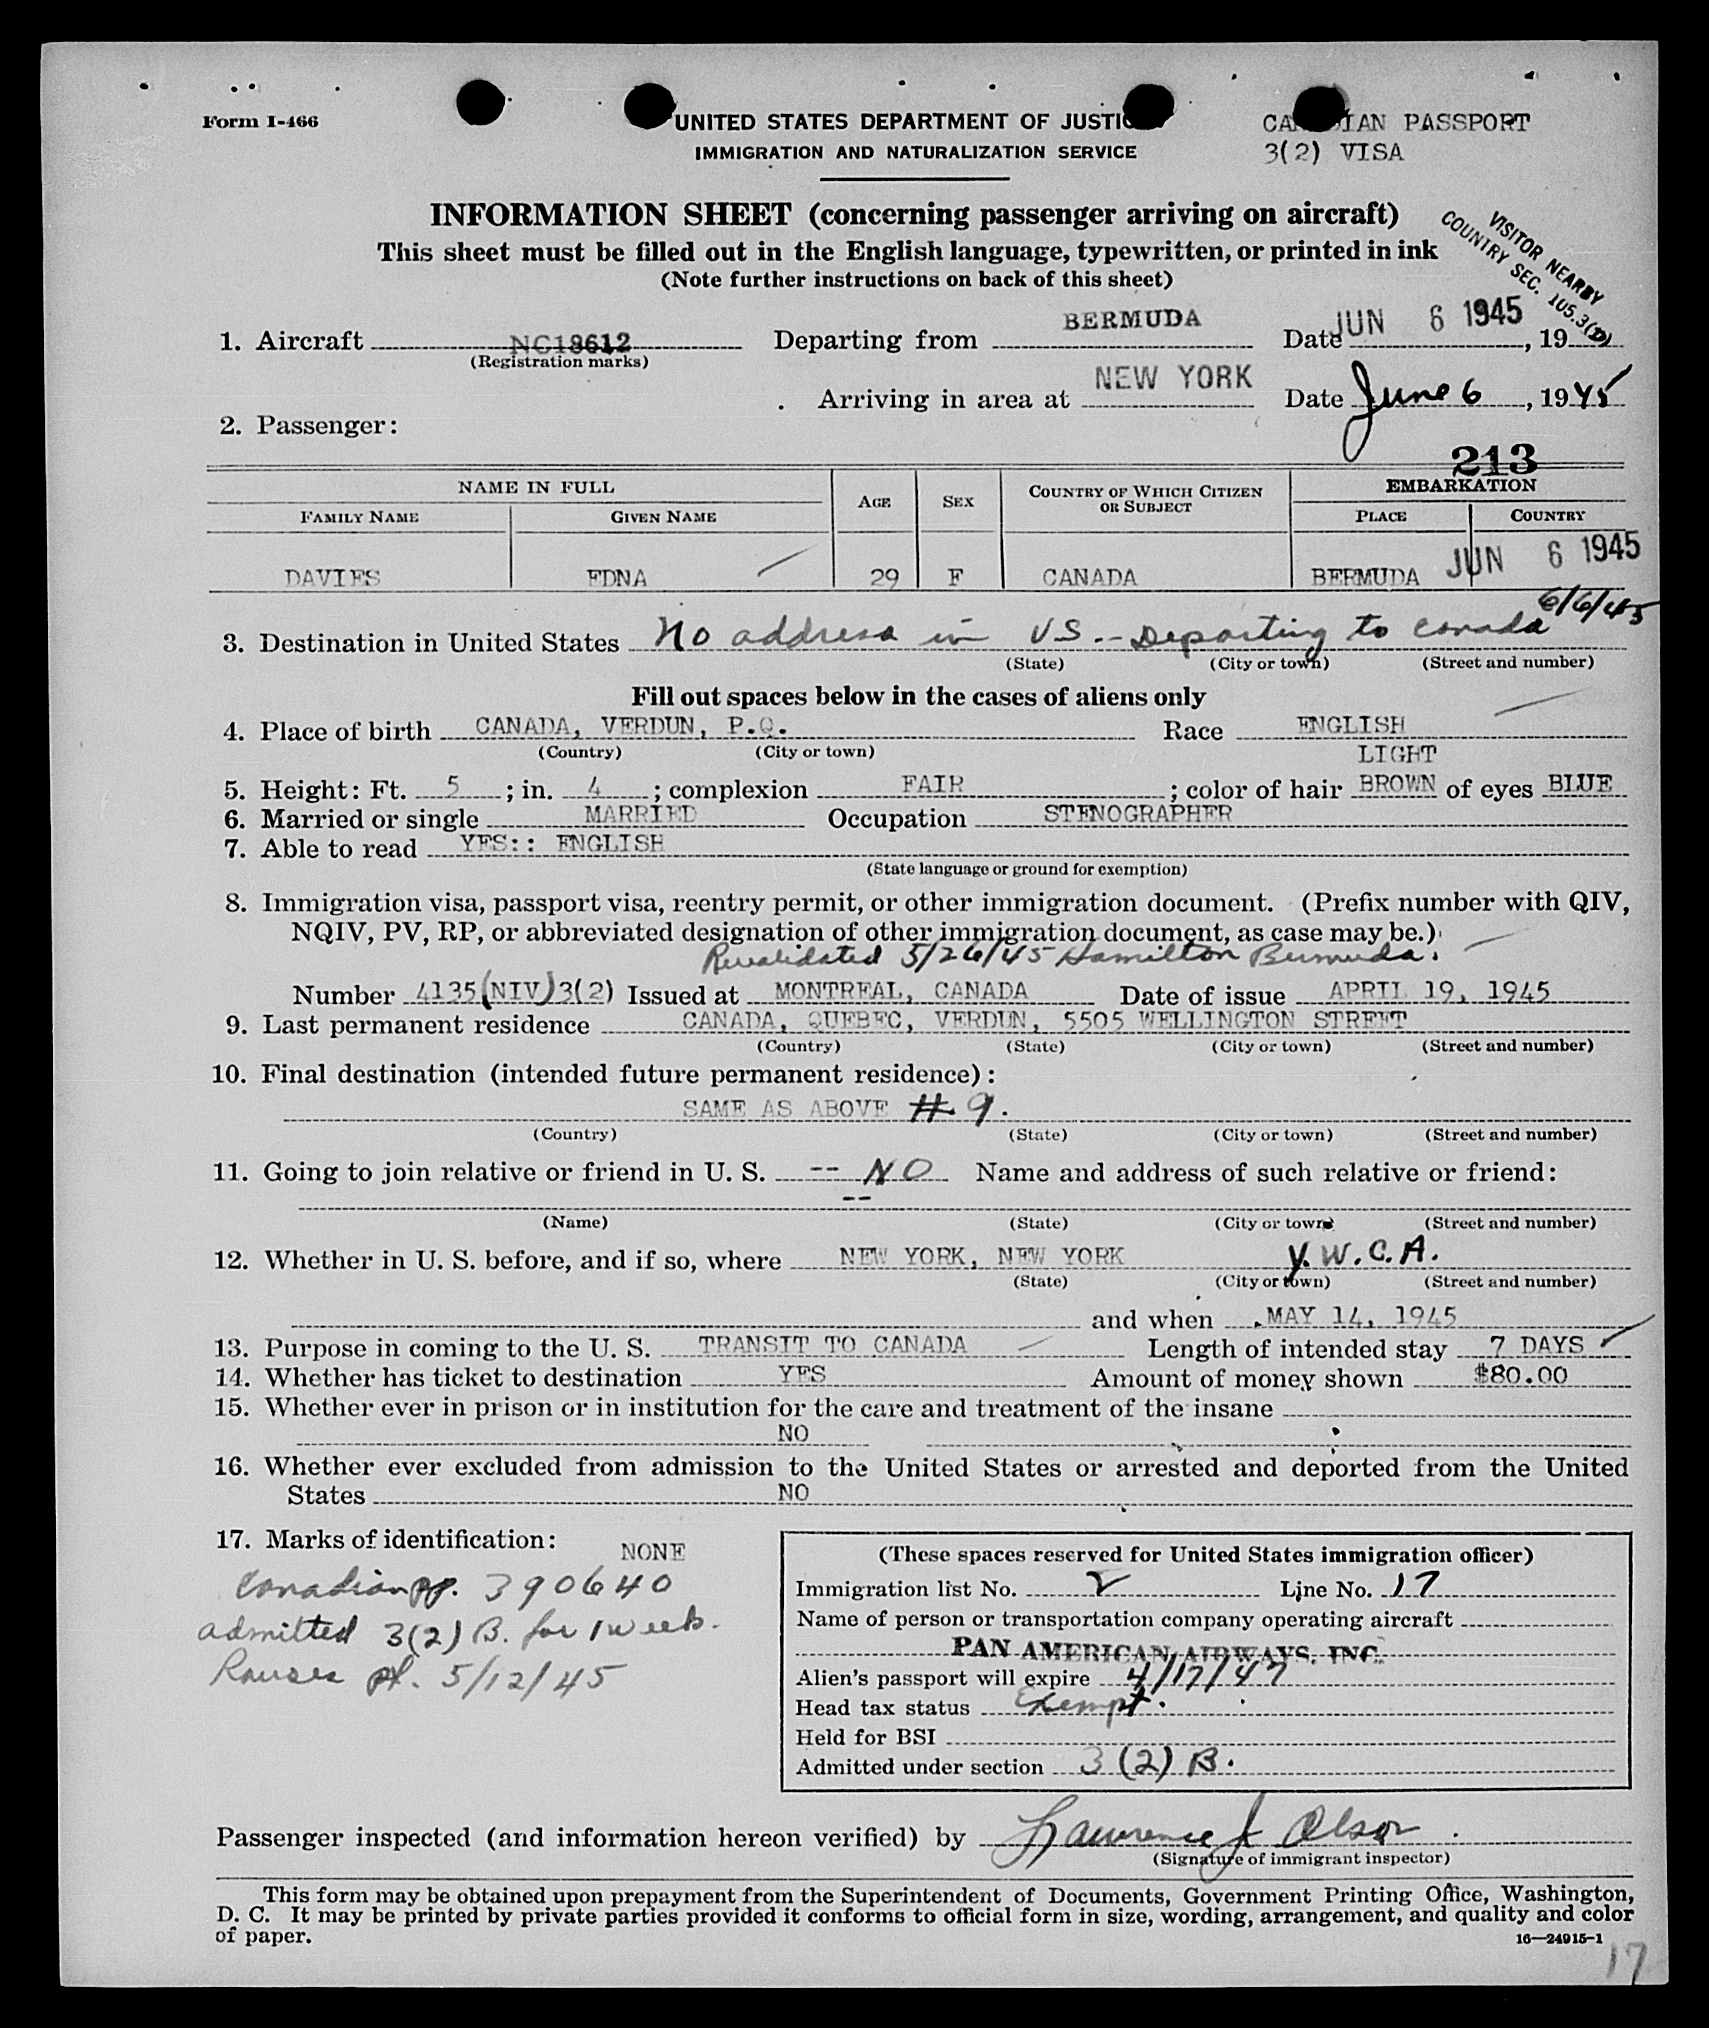 Form I-466
UNITED STATES DEPARTMENT OF JUSTIC
IMMIGRATION AND NATURALIZATION SERVICE
CA IAN PASSPORT
3(2) VISA
INFORMATION SHEET (concerning passenger arriving on aircraft)
This sheet must be filled out in the English language, typewritten, or printed in ink
(Note further instructions on back of this sheet)
VISITOR NEARBY
COUNTRY SEC. 105.3(D)
1. Aircraft NC18612 Departing from BERMUDA Date JUN 6 1945, 19
(Registration marks)
Arriving in area at NEW YORK Date June 6, 1945
2. Passenger:
213
NAME IN FULL
FAMILY NAME GIVEN NAME AGE SEX COUNTRY OF WHICH CITIZEN OR SUBJECT EMBARKATION PLACE COUNTRY
DAVIES EDNA 29 F CANADA BERMUDA JUN 6 1945
3. Destination in United States No address in US. -- Departing to Canada 6/6/45
(State) (City or town) (Street and number)
Fill out spaces below in the cases of aliens only
4. Place of birth CANADA, VERDUN, P.Q. Race ENGLISH
(Country) (City or town)
LIGHT
5. Height: Ft. 5; in. 4; complexion FAIR; color of hair BROWN of eyes BLUE
6. Married or single MARRIED Occupation STENOGRAPHER
7. Able to read YES:: ENGLISH
(State language or ground for exemption)
8. Immigration visa, passport visa, reentry permit, or other immigration document. (Prefix number with QIV,
NQIV, PV, RP, or abbreviated designation of other immigration document, as case may be.)
Revalidated 5/26/45 Hamilton Bermuda.
Number 4135(NIV)3(2) Issued at MONTREAL, CANADA Date of issue APRIL 19, 1945
9. Last permanent residence CANADA, QUEBEC, VERDUN, 5505 WELLINGTON STREET
(Country) (State) (City or town) (Street and number)
10. Final destination (intended future permanent residence):
SAME AS ABOVE # 9.
(Country) (State) (City or town) (Street and number)
11. Going to join relative or friend in U. S. -- NO Name and address of such relative or friend:
--
(Name) (State) (City or town) (Street and number)
12. Whether in U. S. before, and if so, where NEW YORK, NEW YORK Y.W.C.A.
(State) (City or town) (Street and number)
and when MAY 14, 1945
13. Purpose in coming to the U. S. TRANSIT TO CANADA Length of intended stay 7 DAYS
14. Whether has ticket to destination YES Amount of money shown $80.00
15. Whether ever in prison or in institution for the care and treatment of the insane
NO
16. Whether ever excluded from admission to the United States or arrested and deported from the United
States NO
17. Marks of identification: NONE
Canadian pp. 390640
admitted 3(2) B. for 1 week.
Rouses pt. 5/12/45
(These spaces reserved for United States immigration officer)
Immigration list No. 2 Line No. 17
Name of person or transportation company operating aircraft
PAN AMERICAN AIRWAYS, INC.
Alien's passport will expire 4/17/47
Head tax status Exempt.
Held for BSI
Admitted under section 3 (2) B.
Passenger inspected (and information hereon verified) by Lawrence J Olson
(Signature of immigrant inspector)
This form may be obtained upon prepayment from the Superintendent of Documents, Government Printing Office, Washington,
D. C. It may be printed by private parties provided it conforms to official form in size, wording, arrangement, and quality and color
of paper.
16—24915-1
17